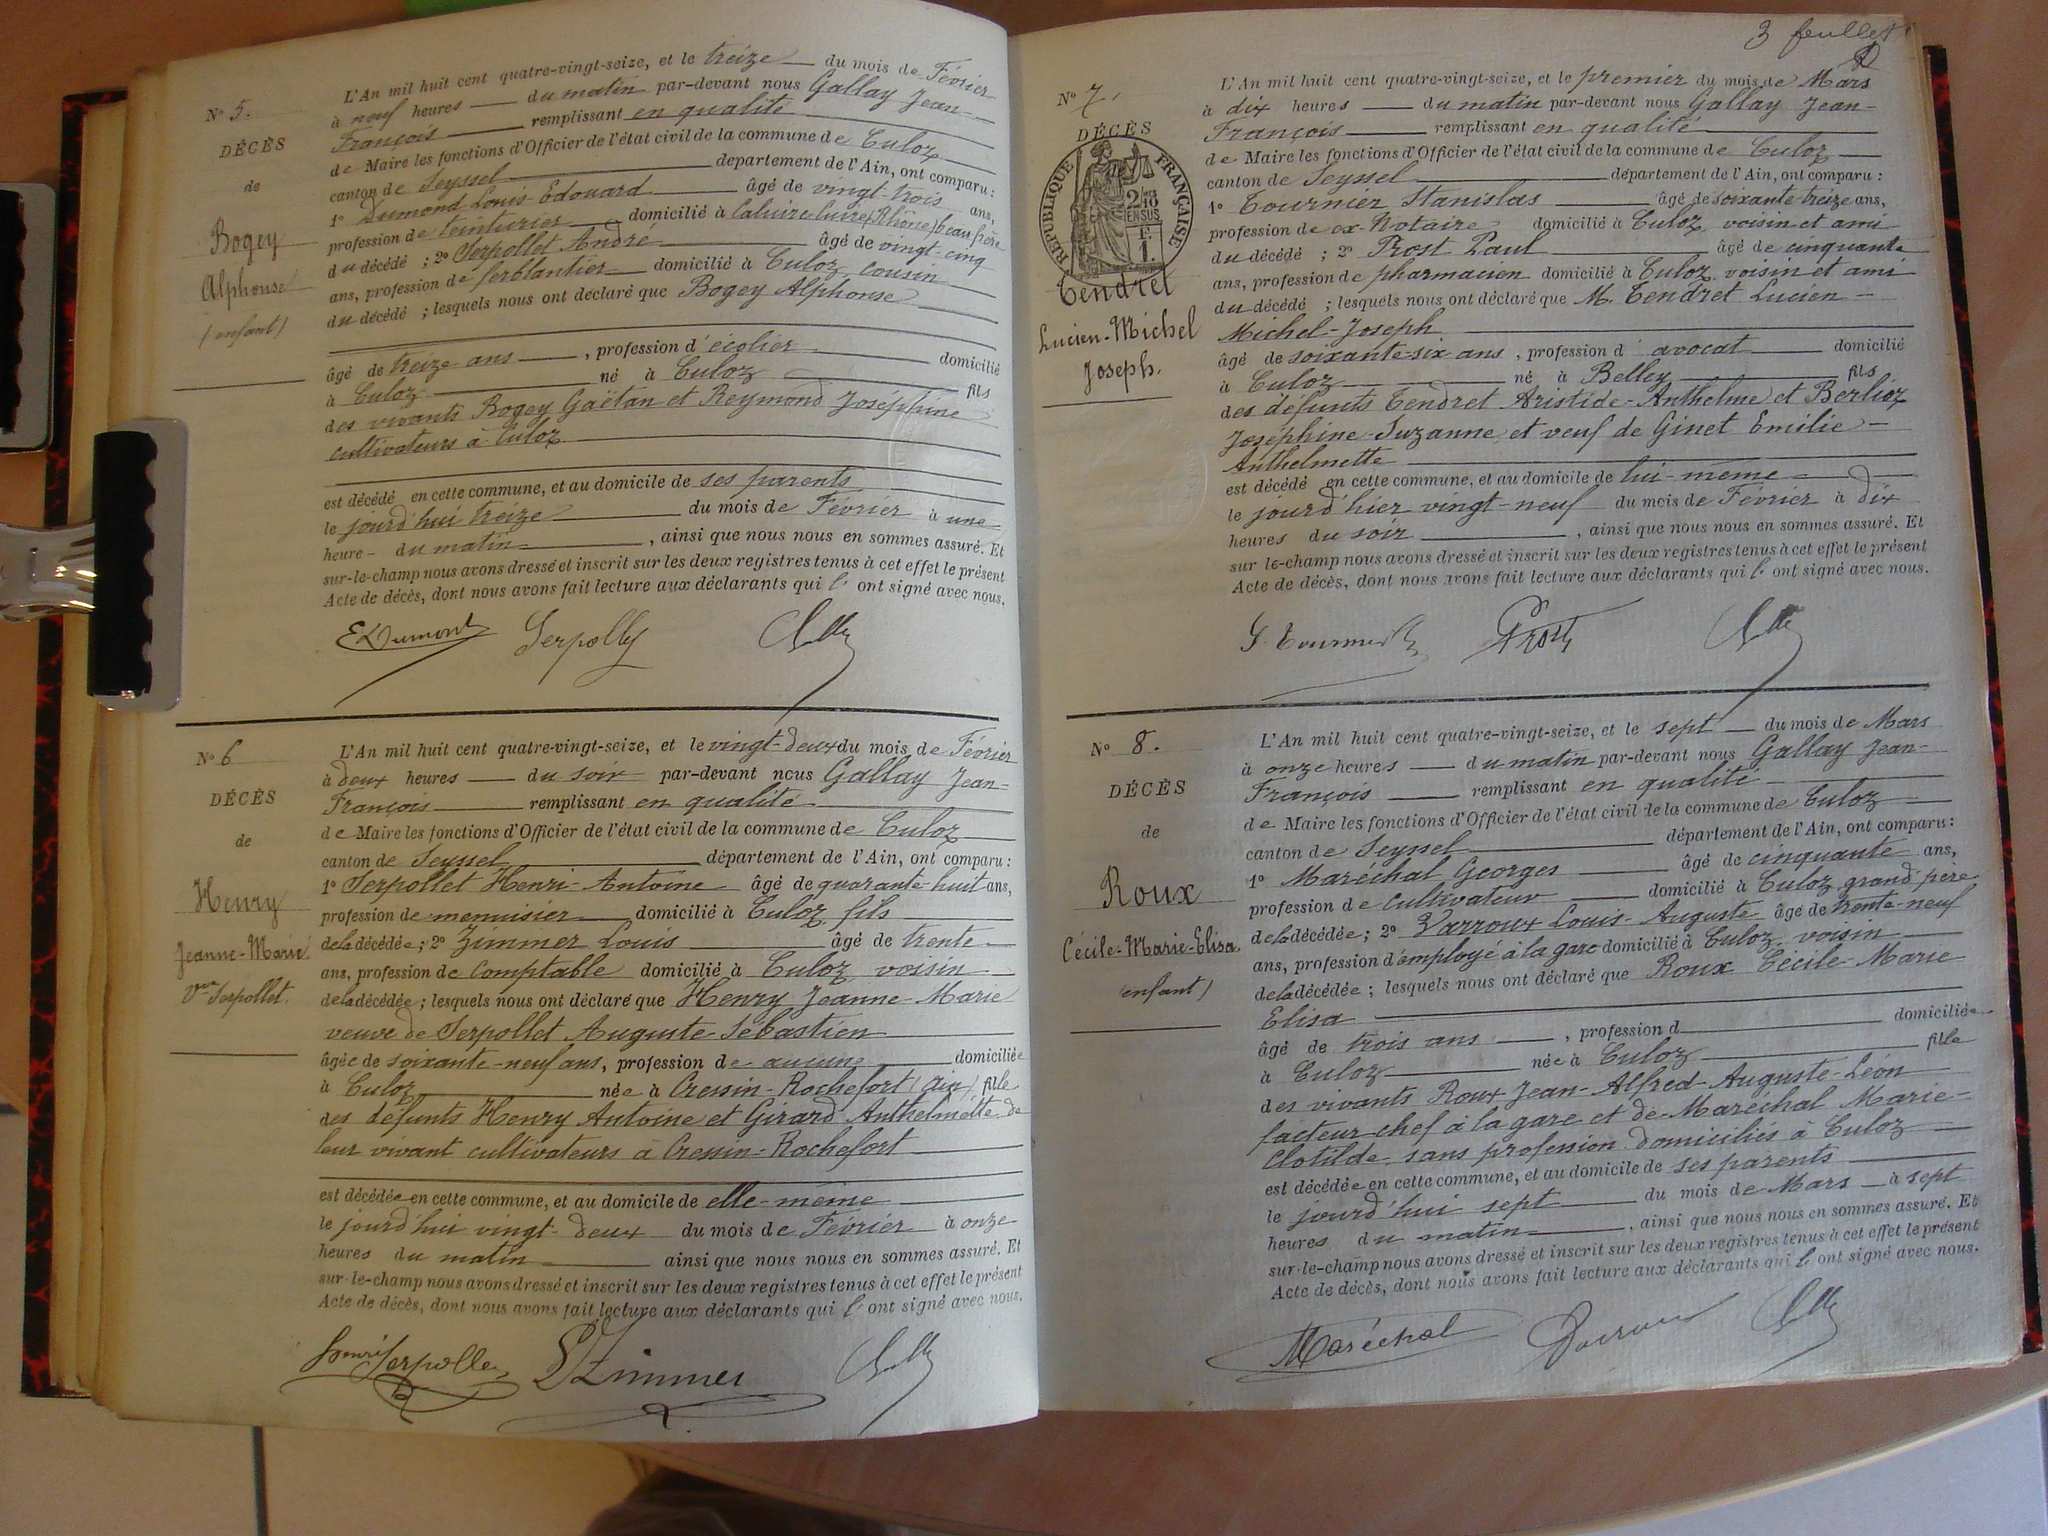 N° 5.
DÉCÈS
de
Bogey
Alphonse
(enfant)
L'An mil huit cent quatre-vingt-seize, et le treize du mois de Février
à neuf heures du matin par-devant nous Gallay Jean-
François remplissant en qualité
de Maire les fonctions d'Officier de l'état civil de la commune de Culoz
canton de Seyssel département de l'Ain, ont comparu :
1° Dumond Louis Edouard âgé de vingt-trois ans,
profession de teinturier domicilié à Caluire (Rhône) beau frère
du décédé ; 2° Serpollet André âgé de vingt-cinq
ans, profession de ferblantier domicilié à Culoz, cousin
du décédé ; lesquels nous ont déclaré que Bogey Alphonse
âgé de treize ans, profession d'écolier domicilié
à Culoz né à Culoz fils
des vivants Bogey Gaëtan et Reymond Joséphine
cultivateurs à Culoz
est décédé en cette commune, et au domicile de ses parents
le jourd'hui treize du mois de Février à une
heure du matin, ainsi que nous nous en sommes assuré. Et
sur-le-champ nous avons dressé et inscrit sur les deux registres tenus à cet effet le présent
Acte de décès, dont nous avons fait lecture aux déclarants qui l' ont signé avec nous.
E Dumont Serpolly
N° 6
DÉCÈS
de
Henry
Jeanne-Marie
Vve Serpollet.
L'An mil huit cent quatre-vingt-seize, et le vingt-deux du mois de Février
à deux heures du soir par-devant nous Gallay Jean-
François remplissant en qualité
de Maire les fonctions d'Officier de l'état civil de la commune de Culoz
canton de Seyssel département de l'Ain, ont comparu :
1° Serpollet Henri-Antoine âgé de quarante-huit ans,
profession de menuisier domicilié à Culoz, fils
de la décédée ; 2° Zimmer Louis âgé de trente
ans, profession de Comptable domicilié à Culoz, voisin
de la décédée ; lesquels nous ont déclaré que Henry Jeanne-Marie
veuve de Serpollet Auguste-Sébastien
âgée de soixante-neuf ans, profession de aucune domiciliée
à Culoz née à Cressin-Rochefort (Ain) fille
des défunts Henry Antoine et Girard Anthelmette de
leur vivant cultivateurs à Cressin-Rochefort
est décédée en cette commune, et au domicile de elle-même
le jourd'hui vingt-deux du mois de Février à onze
heures du matin ainsi que nous nous en sommes assuré. Et
sur-le-champ nous avons dressé et inscrit sur les deux registres tenus à cet effet le présent
Acte de décès, dont nous avons fait lecture aux déclarants qui l' ont signé avec nous.
Henri Serpollet L Zimmer
3 feuillet
N° 7.
DÉCÈS
RÉPUBLIQUE FRANÇAISE
2/10 EN SUS
F. 1.
Tendret
Lucien-Michel
Joseph.
L'An mil huit cent quatre-vingt-seize, et le premier du mois de Mars
à dix heures du matin par-devant nous Gallay Jean-
François remplissant en qualité
de Maire les fonctions d'Officier de l'état civil de la commune de Culoz
canton de Seyssel département de l'Ain, ont comparu :
1° Tournier Stanislas âgé de soixante treize ans,
profession de ex-Notaire domicilié à Culoz, voisin et ami
du décédé ; 2° Prost Paul âgé de cinquante
ans, profession de pharmacien domicilié à Culoz, voisin et ami
du décédé ; lesquels nous ont déclaré que M. Tendret Lucien-
Michel-Joseph
âgé de soixante-six ans, profession d'avocat domicilié
à Culoz né à Belley fils
des défunts Tendret Aristide-Anthelme et Berlioz
Joséphine-Suzanne et veuf de Ginet Emilie-
Anthelmette
est décédé en cette commune, et au domicile de lui-même
le jourd'hier vingt-neuf du mois de Février à dix
heures du soir, ainsi que nous nous en sommes assuré. Et
sur-le-champ nous avons dressé et inscrit sur les deux registres tenus à cet effet le présent
Acte de décès, dont nous avons fait lecture aux déclarants qui l' ont signé avec nous.
S. Tournier Prost
N° 8.
DÉCÈS
de
Roux
Cécile-Marie-Elisa.
(enfant)
L'An mil huit cent quatre-vingt-seize, et le sept du mois de Mars
à onze heures du matin par-devant nous Gallay Jean-
François remplissant en qualité
de Maire les fonctions d'Officier de l'état civil de la commune de Culoz
canton de Seyssel département de l'Ain, ont comparu :
1° Maréchal Georges âgé de cinquante ans,
profession de cultivateur domicilié à Culoz, grand père
de la décédée ; 2° Varroux Louis-Auguste âgé de trente-neuf
ans, profession d'employé à la gare domicilié à Culoz, voisin
de la décédée ; lesquels nous ont déclaré que Roux Cécile-Marie
Elisa
âgé de trois ans, profession d domiciliée
à Culoz née à Culoz fille
des vivants Roux Jean-Alfred-Auguste-Léon
facteur chef à la gare et de Maréchal Marie-
Clotilde, sans profession domiciliés à Culoz
est décédée en cette commune, et au domicile de ses parents
le jourd'hui sept du mois de Mars à sept
heures du matin, ainsi que nous nous en sommes assuré. Et
sur-le-champ nous avons dressé et inscrit sur les deux registres tenus à cet effet le présent
Acte de décès, dont nous avons fait lecture aux déclarants qui l' ont signé avec nous.
Maréchal Varroux